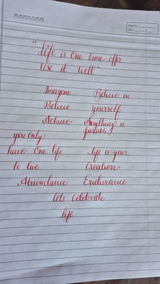 "Life is one time offer
use it well"
Imagine Believe in
Believe yourself
Achieve Anything is
possible
you only
have One life life is your
to live Creation
Abundance Endurance
lets Celebrate
life